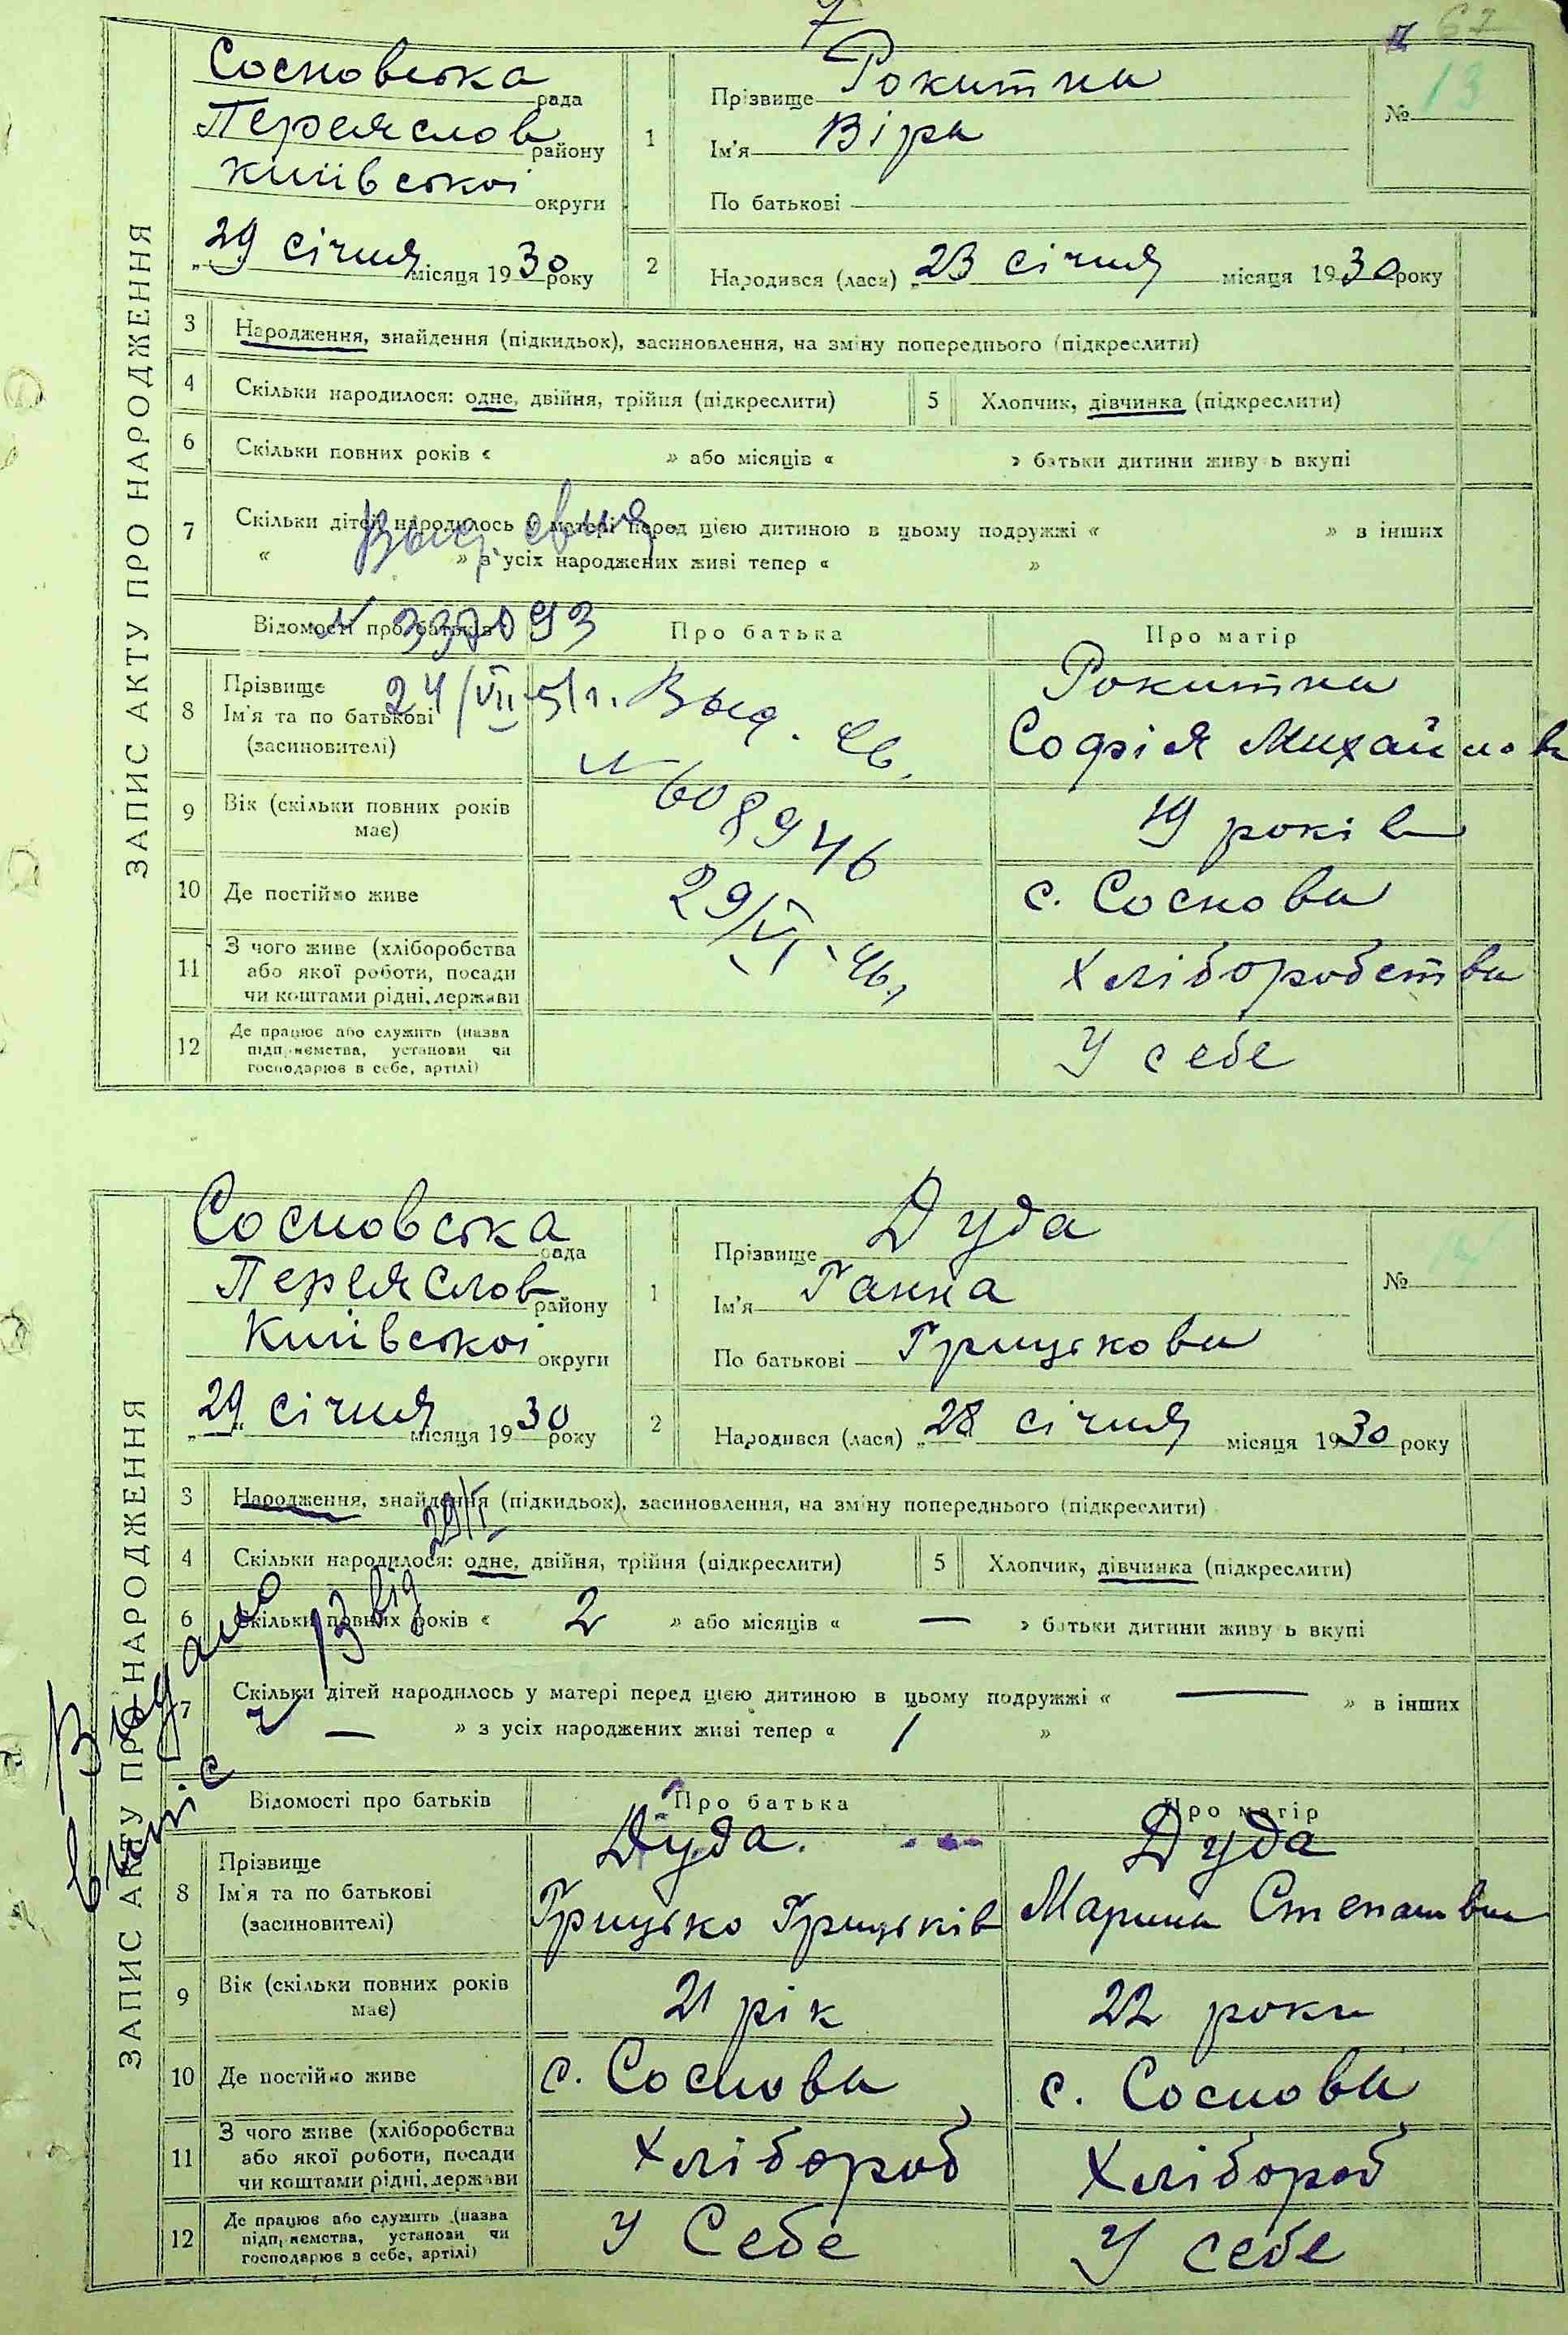 7
67
ЗАПИС АКТУ ПРО НАРОДЖЕННЯ
Сосновська рада
Переяслов району
Київської округи
„29 січня місяця 1930 року
1
Прізвище Рокитна
Ім'я Віра
По батькові
№ 13
2
Народився (лася) „23 січня місяця 1930 року
3 Народження, знайдення (підкидьок), засиновлення, на зміну попереднього (підкреслити)
4 Скільки народилося: одне, двійня, трійня (підкреслити)
5 Хлопчик, дівчинка (підкреслити)
6 Скільки повних років « » або місяців « » батьки дитини живуть вкупі
7 Скільки дітей народилось у матері перед цією дитиною в цьому подружжі « » в інших
« » з усіх народжених живі тепер « »
Відомості про батьків
Про батька
Про матір
24/VII-51 г. Выд. св.
N 608946
29/VI-46.
8 Прізвище
Ім'я та по батькові
(засиновителі)
Рокитна
Софія Михайлов
9 Вік (скільки повних років
має)
19 років
10 Де постійно живе
с. Соснова
11 З чого живе (хліборобства
або якої роботи, посади
чи коштами рідні, держави
Хліборобства
12 Де працює або служить (назва
підприємства, установи чи
господарює в себе, артілі)
У себе
ЗАПИС АКТУ ПРО НАРОДЖЕННЯ
Сосновська рада
Переяслов району
Київської округи
„29" січня місяця 1930 року
1
Прізвище Дуда
Ім'я Ганна
По батькові Грицькова
№ 14
2
Народився (лася) „28 січня місяця 1930 року
3 Народження, знайдення (підкидьок), засиновлення, на зміну попереднього (підкреслити)
4 Скільки народилося: одне, двійня, трійня (підкреслити)
5 Хлопчик, дівчинка (підкреслити)
6 Скільки повних років « 2 » або місяців « — » батьки дитини живуть вкупі
7 Скільки дітей народилось у матері перед цією дитиною в цьому подружжі « — » в інших
— » з усіх народжених живі тепер « 1 »
Видано
від 29/I
Відомості про батьків
Про батька
Про матір
8 Прізвище
Ім'я та по батькові
(засиновителі)
Дуда.
Грицько Грицьків
Дуда
Марина Степанівна
9 Вік (скільки повних років
має)
21 рік
22 роки
10 Де постійно живе
с. Соснова
с. Соснова
11 З чого живе (хліборобства
або якої роботи, посади
чи коштами рідні, держави
Хлібороб
Хлібороб
12 Де працює або служить (назва
підприємства, установи чи
господарює в себе, артілі)
У Себе
У себе